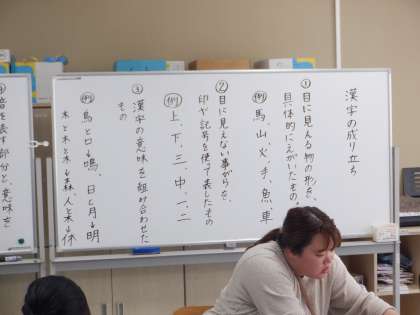 漢字の成り立ち
①目に見える物の形を、
具体的にえがいたもの。
例 馬、山、火、手、魚、車
②目に見えない事がらを、
印や記号を使って表したもの
例 上、下、三、中、一、二
③漢字の意味を組み合わせた
もの
例 鳥と口→鳴、日と月→明
木と木と木→森、人と木→休
④音を表す部分と、意味を